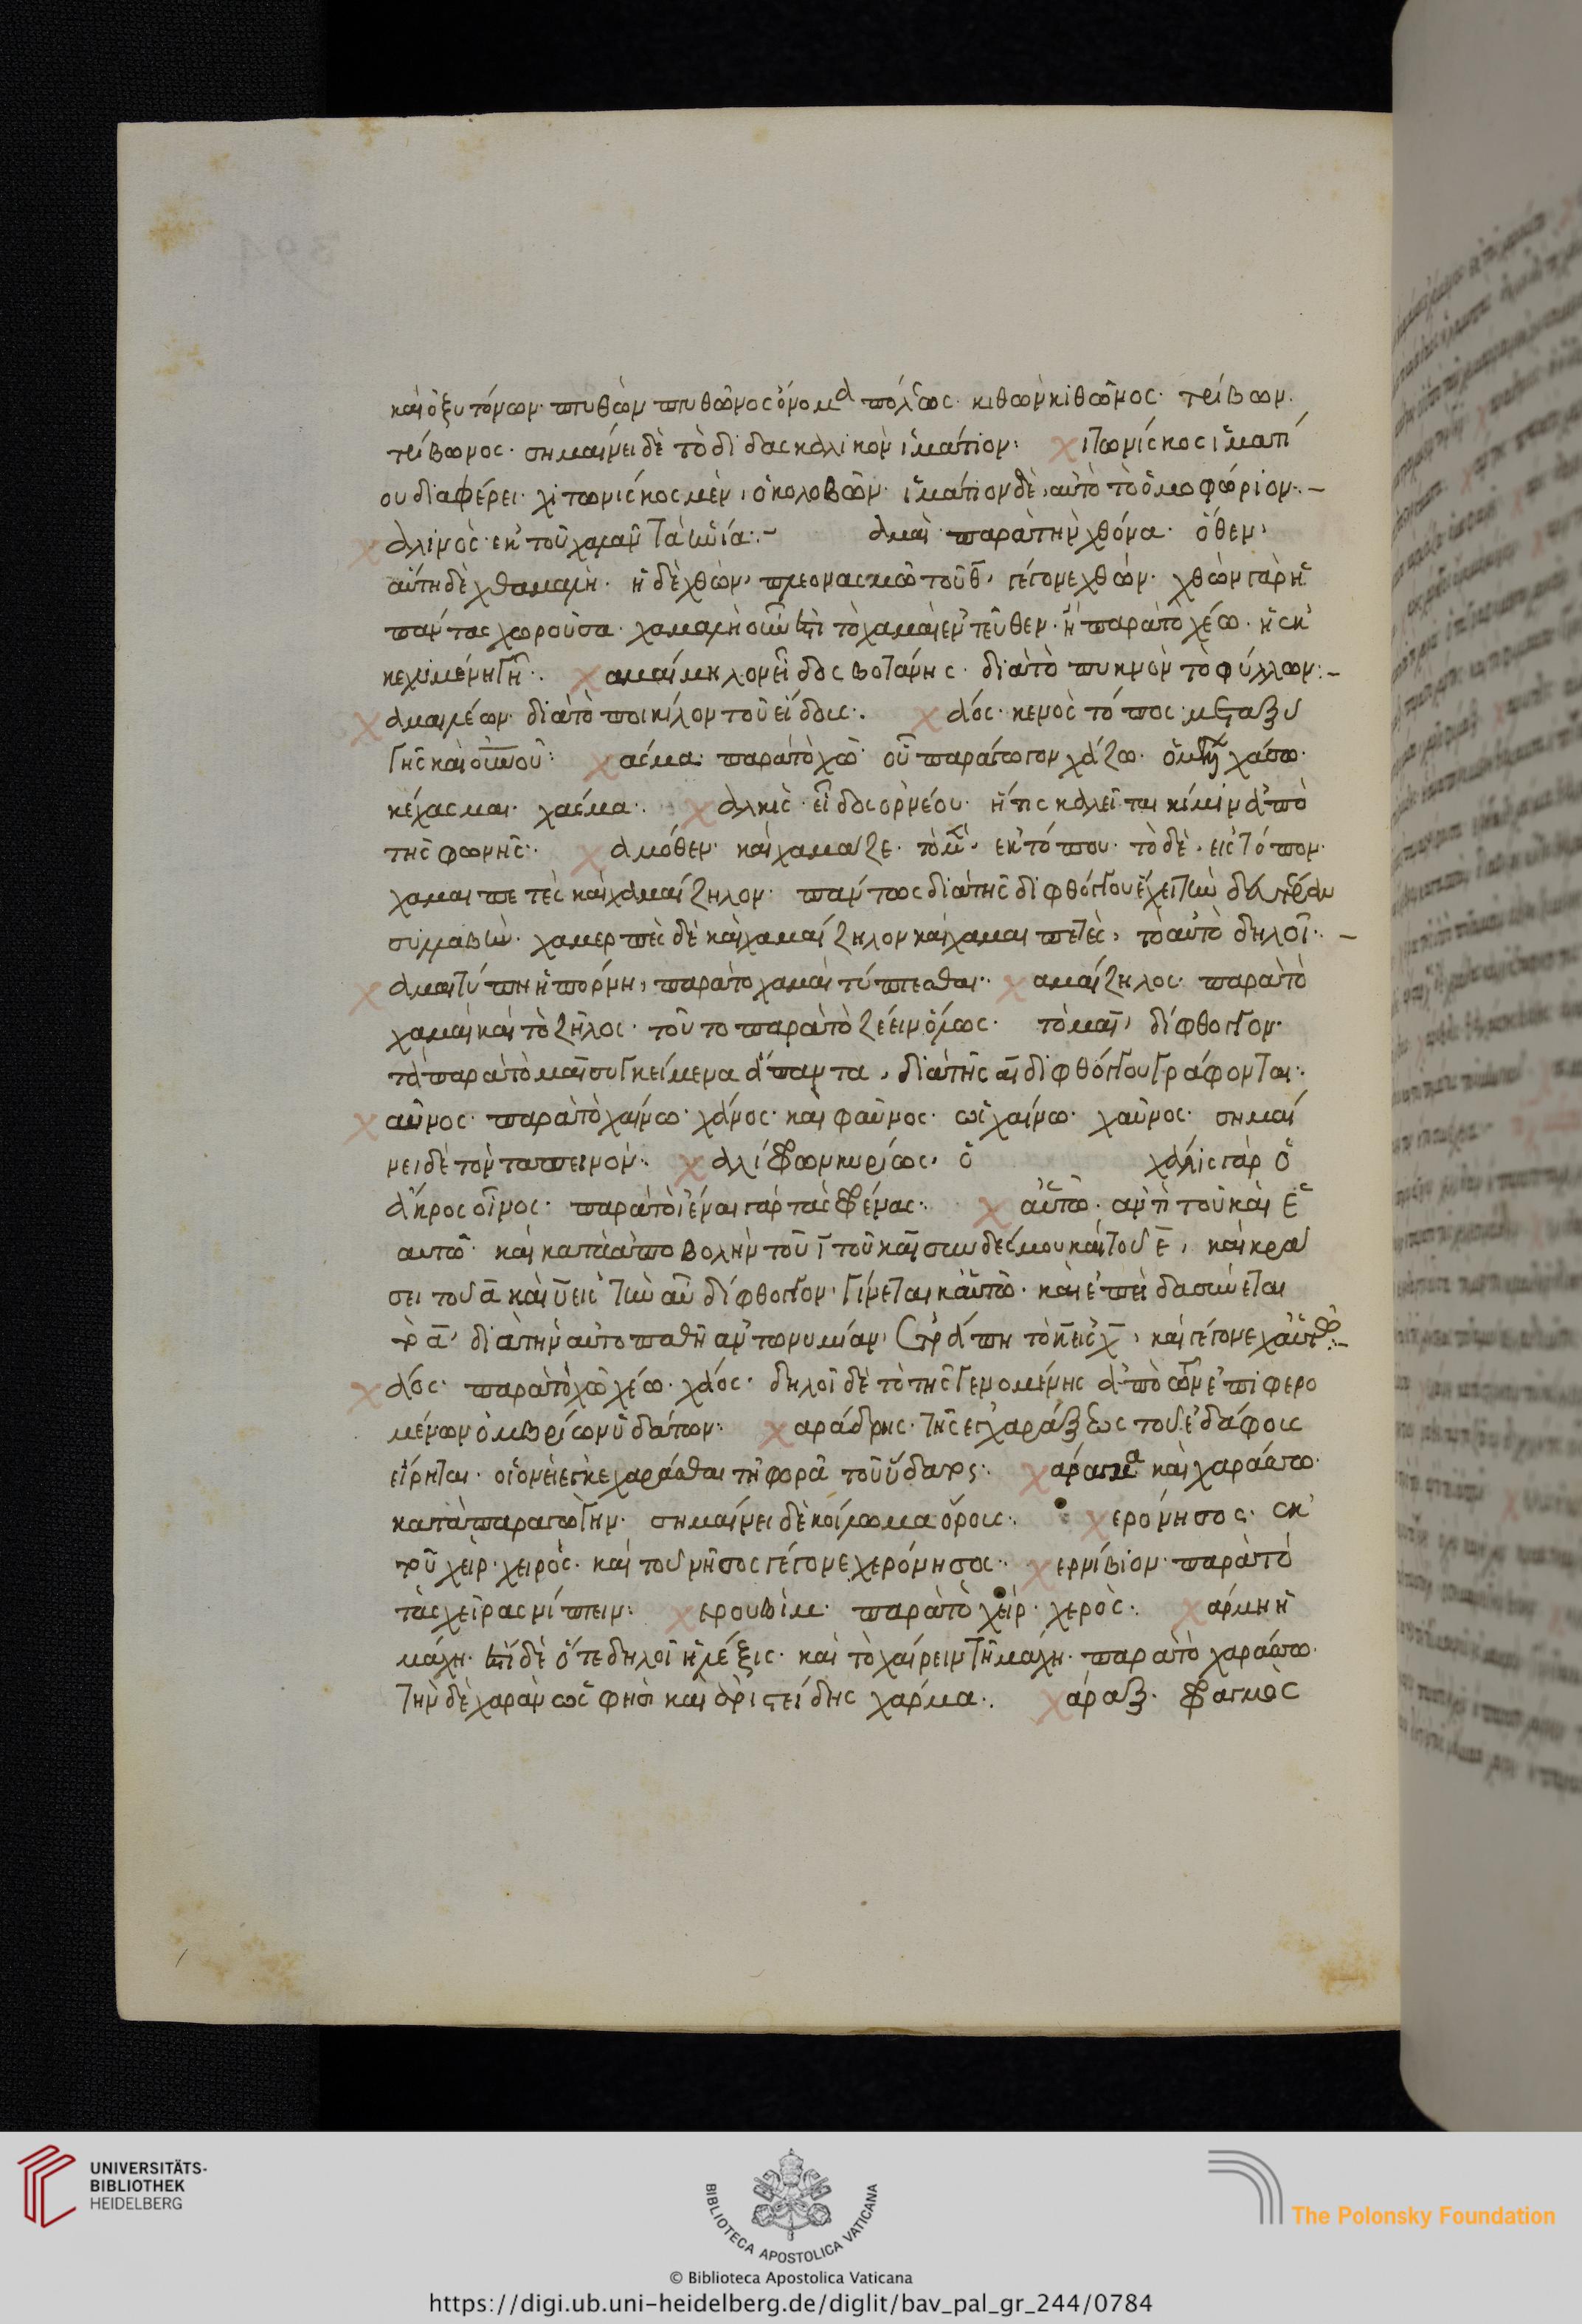 καὶ ὀξυτόνων· πυθὼν πυθῶνος ὄνομα πόλεως· κιθὼν κιθῶνος· τρίβων
τρίβωνος· σημαίνει δὲ τὸ διδασκαλικὸν ἱμάτιον: χιτωνίσκος ἱματί
ου διαφέρει· χιτωνίσκος μὲν, ὁ κολοβῶν· ἱμάτιον δὲ, αὐτὸ τὸ ὁμοφόριον:
χαλινὸς· ἐκ τοῦ χαλᾶν τὰ ἡνία: αμαὶ· παρὰ τὴν χθόνα· ὅθεν,
αὕτη δὲ χθαμαλὴ· ἡ δὲ χθὼν, πλεονασμῶ τοῦ θ, γέγονε χθών· χθὼν γὰρ ἡ
πάντας χωροῦσα· χαμαλὴ οὖν ἐπὶ τὸ χαμαὶ ἐντεῦθεν· ἢ παρὰ τὸ χέω· ἡ ἐκ
κεχυμένη γῆ: χαμαίμηλον εἶδος βοτάνης· διὰ τὸ πυκνὸν τὸ φύλλων:
χαμαιλέων· διὰ τὸ ποικίλον τοῦ εἴδους: χάος· κενὸς τόπος μεταξὺ
γῆς καὶ οὐνοῦ: χάσμα· παρὰ τὸ χῶ· οὗ παράγωγον χάζω· ὁ μέλλων χάσω·
κέχασμαι· χάσμα: χαλκὶς· εἶδος ὀρνέου· ἥτις καλεῖται κίμιν ἀπὸ
τῆς φωνῆς: χαμόθεν· καὶ χαμάζε· τὸ μὲν, ἐκ τόπου· τὸ δὲ, εἰς τόπον·
χαμαιπετὲς καὶ χαμαίζηλον· πάντως διὰ τῆς διφθόγγου ἔχει τὴν δευτέραν
συλλαβὴν· χαμερπὲς δὲ καὶ χαμαίζηλον καὶ χαμαιπετὲς, τὸ αὐτὸ δηλοῖ:
χαμαιτύπη ἡ πόρνη, παρὰ τὸ χαμαὶ τύπτεσθαι: χαμαίζηλος· παρὰ τὸ
χαμαὶ καὶ τὸ ζῆλος· τοῦτο παρὰ τὸ ζέειν ὅλως· τὸ μαι, δίφθογγον·
τὰ παρὰ τὸ μαι συγκείμενα ἅπαντα, διὰ τῆς αι διφθόγγου γράφονται:
χαῦνος· παρὰ τὸ χαίνω· χάνος· καὶ φαῦνος· ὡς χαίνω· χαῦνος· σημαί
νει δὲ τὸν ταπεινόν: χαλίφρων κυρίως, ὁ χάλις γὰρ ὁ
ἄκρος οἶνος· παρὰ τὸ ἰέναι γὰρ τὰς φρένας: χαὐτῶ· ἀντὶ τοῦ καὶ ἑ
αυτῶ· καὶ κατὰ ἀποβολὴν τοῦ ι τοῦ και συνδέσμου καὶ τοῦ ε, καὶ κρά
σει τοῦ α καὶ υ εἰς τὴν αυ δίφθογγον· γίνεται καὐτῶ· καὶ ἐπεὶ δασύνεται
τὸ α, διὰ τὴν αὐτοπαθῆ ἀντωνυμίαν, ἐτράπη τὸ κ εἰς χ, καὶ γέγονε χαὐτῶ:
χάος· παρὰ τὸ χῶ χέω· χάος· δηλοῖ δὲ τὸ τῆς γενομένης ἀπὸ τῶν ἐπιφερο
μένων ὀμβρίων ὑδάτων: χαράδρης· τῆς ἐκχαράξεως τοῦ ἐδάφους
εἴρηται· οἱονεὶ ἐκκεχαράσθαι τῆ φορᾶ τοῦ ὕδατος: χάραγμα καὶ χαράσσω·
κατὰ παραγωγήν· σημαίνει δὲ κοίλωμα ὄρους: χερόνησος· ἐκ
τοῦ χεὶρ· χειρὸς· καὶ τοῦ νῆσος γέγονε χερόνησος: χερνίβιον· παρὰ τὸ
τὰς χεῖρας νίπτειν: χερουβὶμ· παρὰ τὸ χεὶρ· χερὸς: χάρμη ἡ
μάχη· ἐπὶ δὲ ὅτε δηλοῖ ἡ λέξις· καὶ τὸ χαίρειν τῆ μάχη· παρὰ τὸ χαράσσω·
τὴν δὲ χαρὰν ὥς φησι καὶ ἀριστείδης χάρμα: χάραξ· φραγμὸς
UNIVERSITÄTS-
BIBLIOTHEK
HEIDELBERG
BIBLIOTECA APOSTOLICA VATICANA
The Polonsky Foundation
© Biblioteca Apostolica Vaticana
https://digi.ub.uni-heidelberg.de/diglit/bav_pal_gr_244/0784